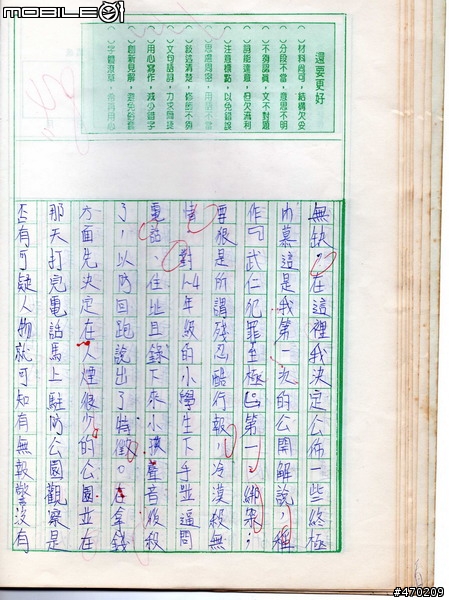 MOBILE01
還要更好
(  )材料尚可，結構欠妥
(  )分段不當，意思不明
(  )不夠認真，文不對題
(  )詞能達意，但欠流利
(  )注意標點，以免錯誤
(  )敘述清楚，修飾不夠
(  )文句話語，力求簡捷
(  )用心寫作，減少錯字
(  )創新見解，避免俗套
(  )字體潦草，希請用心
無缺。在這裡我決定公佈一些終極
內幕這是我第一次的公開解說，種
作『武仁犯罪至極』第一，綁票；
罪狠是所謂殘忍酷行報，冷漠殺無
情，對1~4年級的小學生下手並逼問
電話、住址且錄下來小孩聲音後殺
了，以防回跑說出了特徵。在拿錢
方面先決定在人煙很少的公園並在
那天打完電話馬上駐防公園觀察是
否有可疑人物就可知有無報警沒有
#470209